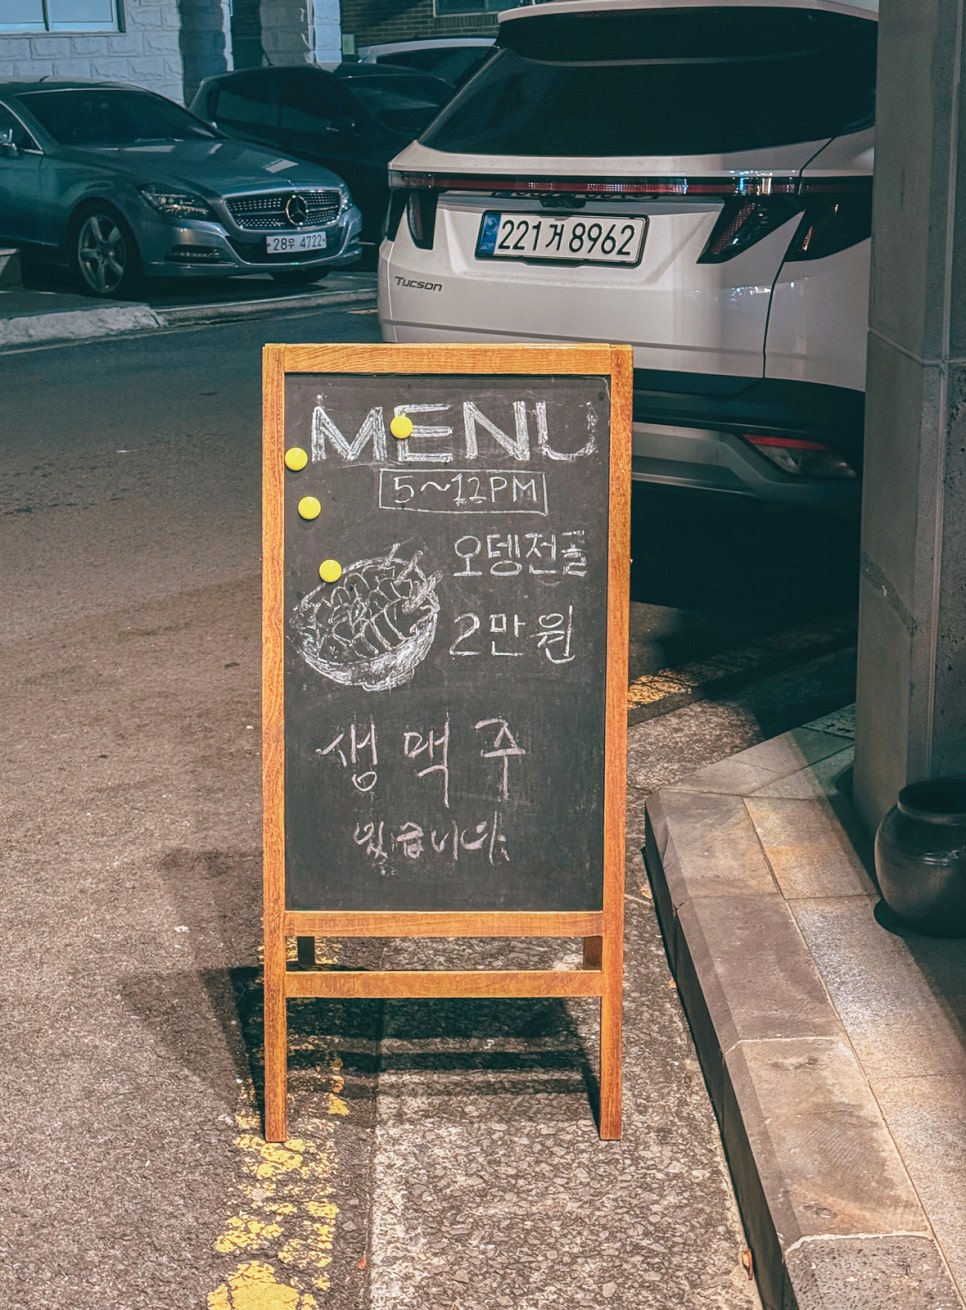 28우 4722
221거 8962
TUCSON
MENU
5~12PM
오뎅전골
2만원
생맥주
있습니다